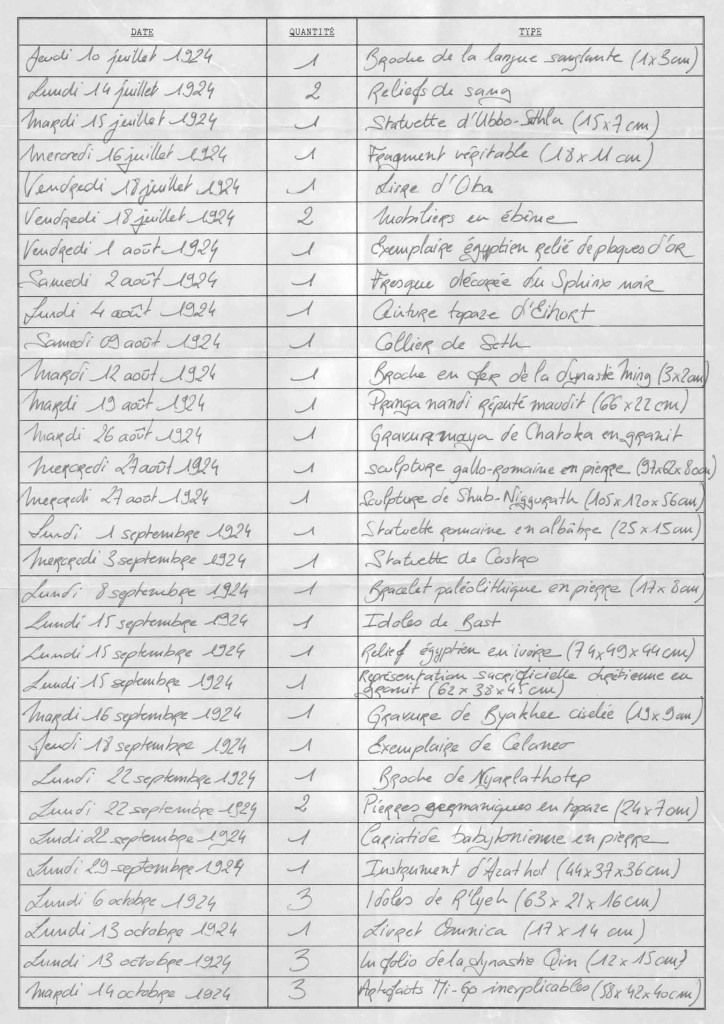 DATE QUANTITÉ TYPE
Jeudi 10 juillet 1924 1 Broche de la langue sanglante (1x3cm)
Lundi 14 juillet 1924 2 Reliefs de sang
Mardi 15 juillet 1924 1 Statuette d'Ubbo-Sathla (15x7cm)
Mercredi 16 juillet 1924 1 Fragment véritable (18x11cm)
Vendredi 18 juillet 1924 1 Livre d'Oba
Vendredi 18 juillet 1924 2 Mobiliers en ébène
Vendredi 1 août 1924 1 Exemplaire égyptien relié de plaques d'or
Samedi 2 août 1924 1 Fresque décorée du Sphinx noir
Lundi 4 août 1924 1 Ceinture topaze d'Eihort
Samedi 09 août 1924 1 Collier de Seth
Mardi 12 août 1924 1 Broche en fer de la dynastie Ming (3x2cm)
Mardi 19 août 1924 1 Pranga nandi réputé maudit (66x22cm)
Mardi 26 août 1924 1 Gravure maya de Chatoka en granit
Mercredi 27 août 1924 1 sculpture gallo-romaine en pierre (97x62x80cm)
Mercredi 27 août 1924 1 Sculpture de Shub-Niggurath (105x120x56cm)
Lundi 1 septembre 1924 1 Statuette romaine en albâtre (25x15cm)
Mercredi 3 septembre 1924 1 Statuette de Castro
Lundi 8 septembre 1924 1 Bracelet paléolithique en pierre (17x8cm)
Lundi 15 septembre 1924 1 Idoles de Bast
Lundi 15 septembre 1924 1 Relief égyptien en ivoire (74x49x44cm)
Lundi 15 septembre 1924 1 Représentation sacrificielle chrétienne en
granit (62x38x45cm)
Mardi 16 septembre 1924 1 Gravure de Byakhee ciselée (19x9cm)
Jeudi 18 septembre 1924 1 Exemplaire de Celaneo
Lundi 22 septembre 1924 1 Broche de Nyarlathotep
Lundi 22 septembre 1924 2 Pierres germaniques en topaze (24x7cm)
Lundi 22 septembre 1924 1 Cariatide babylonienne en pierre
Lundi 29 septembre 1924 1 Instrument d'Azathot (44x37x36cm)
Lundi 6 octobre 1924 3 Idoles de R'lyeh (63x21x16cm)
Lundi 13 octobre 1924 1 Livret Omnica (17x14cm)
Lundi 13 octobre 1924 3 In folio de la dynastie Qin (12x15cm)
Mardi 14 octobre 1924 3 Artefacts Mi-Go inexplicables (58x42x40cm)